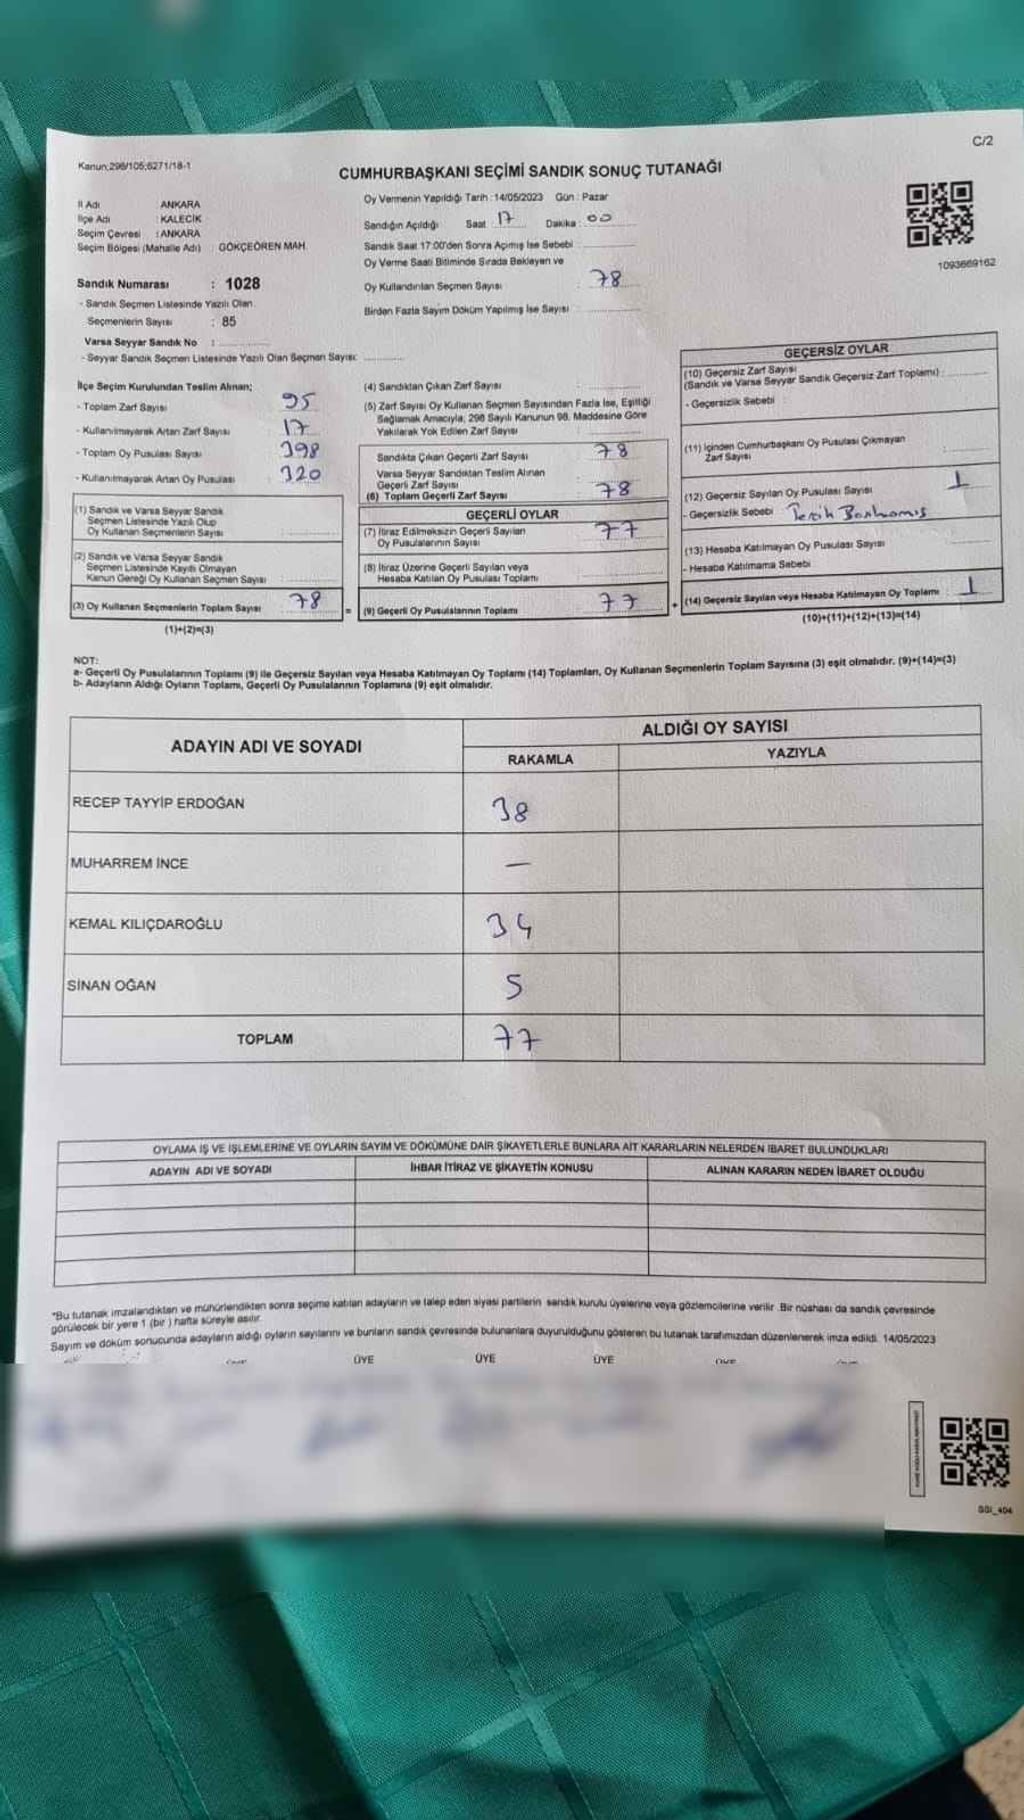 C/2
Kanun;298/105;6271/18-1
CUMHURBAŞKANI SEÇİMİ SANDIK SONUÇ TUTANAĞI
İl Adı : ANKARA
İlçe Adı : KALECİK
Seçim Çevresi : ANKARA
Seçim Bölgesi (Mahalle Adı) : GÖKÇEÖREN MAH.
Sandık Numarası : 1028
- Sandık Seçmen Listesinde Yazılı Olan
Seçmenlerin Sayısı : 85
Varsa Seyyar Sandık No :
- Seyyar Sandık Seçmen Listesinde Yazılı Olan Seçmen Sayısı:
Oy Vermenin Yapıldığı Tarih : 14/05/2023 Gün : Pazar
Sandığın Açıldığı Saat 17 Dakika : 00
Sandık Saat 17:00'den Sonra Açımış İse Sebebi :
Oy Verme Saati Bitiminde Sırada Bekleyen ve
Oy Kullandırılan Seçmen Sayısı : 78
Birden Fazla Sayım Döküm Yapılmış İse Sayısı :
1093669162
İlçe Seçim Kurulundan Teslim Alınan;
- Toplam Zarf Sayısı 95
- Kullanılmayarak Artan Zarf Sayısı 17
- Toplam Oy Pusulası Sayısı 398
- Kullanılmayarak Artan Oy Pusulası 320
(1) Sandık ve Varsa Seyyar Sandık
Seçmen Listesinde Yazılı Olup
Oy Kullanan Seçmenlerin Sayısı
(2) Sandık ve Varsa Seyyar Sandık
Seçmen Listesinde Kayıtlı Olmayan
Kanun Gereği Oy Kullanan Seçmen Sayısı :
(3) Oy Kullanan Seçmenlerin Toplam Sayısı : 78
(1)+(2)=(3)
(4) Sandıktan Çıkan Zarf Sayısı :
(5) Zarf Sayısı Oy Kullanan Seçmen Sayısından Fazla İse, Eşitliği
Sağlamak Amacıyla, 298 Sayılı Kanunun 98. Maddesine Göre
Yakılarak Yok Edilen Zarf Sayısı :
Sandıkta Çıkan Geçerli Zarf Sayısı : 78
Varsa Seyyar Sandıktan Teslim Alınan
Geçerli Zarf Sayısı
(6) Toplam Geçerli Zarf Sayısı : 78
GEÇERLİ OYLAR
(7) İtiraz Edilmeksizin Geçerli Sayılan
Oy Pusulalarının Sayısı 77
(8) İtiraz Üzerine Geçerli Sayılan veya
Hesaba Katılan Oy Pusulası Toplamı
= (9) Geçerli Oy Pusulalarının Toplamı : 77 +
GEÇERSİZ OYLAR
(10) Geçersiz Zarf Sayısı
(Sandık ve Varsa Seyyar Sandık Geçersiz Zarf Toplamı) :
- Geçersizlik Sebebi :
(11) İçinden Cumhurbaşkanı Oy Pusulası Çıkmayan
Zarf Sayısı
(12) Geçersiz Sayılan Oy Pusulası Sayısı 1
- Geçersizlik Sebebi Tercih Basılmamış
(13) Hesaba Katılmayan Oy Pusulası Sayısı
- Hesaba Katılmama Sebebi
(14) Geçersiz Sayılan veya Hesaba Katılmayan Oy Toplamı : 1
(10)+(11)+(12)+(13)=(14)
NOT:
a- Geçerli Oy Pusulalarının Toplamı (9) ile Geçersiz Sayılan veya Hesaba Katılmayan Oy Toplamı (14) Toplamları, Oy Kullanan Seçmenlerin Toplam Sayısına (3) eşit olmalıdır. (9)+(14)=(3)
b- Adayların Aldığı Oyların Toplamı, Geçerli Oy Pusulalarının Toplamına (9) eşit olmalıdır.
ADAYIN ADI VE SOYADI
ALDIĞI OY SAYISI
RAKAMLA YAZIYLA
RECEP TAYYİP ERDOĞAN 38
MUHARREM İNCE —
KEMAL KILIÇDAROĞLU 34
SİNAN OĞAN 5
TOPLAM 77
OYLAMA İŞ VE İŞLEMLERİNE VE OYLARIN SAYIM VE DÖKÜMÜNE DAİR ŞİKAYETLERLE BUNLARA AİT KARARLARIN NELERDEN İBARET BULUNDUKLARI
ADAYIN ADI VE SOYADI İHBAR İTİRAZ VE ŞİKAYETİN KONUSU ALINAN KARARIN NEDEN İBARET OLDUĞU
*Bu tutanak imzalandıktan ve mühürlendikten sonra seçime katılan adayların ve talep eden siyasi partilerin sandık kurulu üyelerine veya gözlemcilerine verilir .Bir nüshası da sandık çevresinde
görülecek bir yere 1 (bir ) hafta süreyle asılır.
Sayım ve döküm sonucunda adayların aldığı oyların sayılarını ve bunların sandık çevresinde bulunanlara duyurulduğunu gösteren bu tutanak tarafımızdan düzenlenerek imza edildi. 14/05/2023
ÜYE ÜYE ÜYE
GGI_404